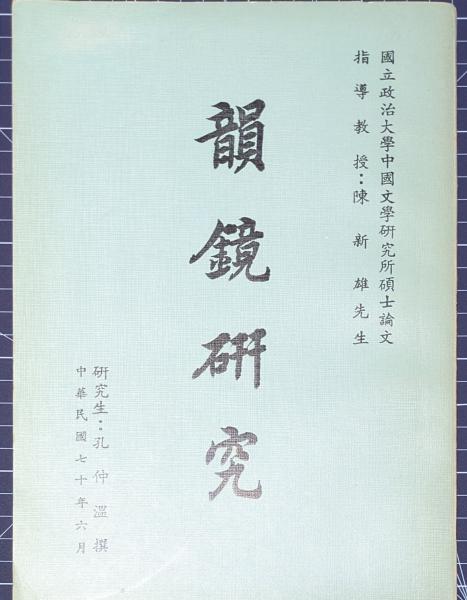 國立政治大學中國文學研究所碩士論文
指導教授：陳新雄先生
韻鏡研究
研究生：孔仲溫撰
中華民國七十年六月